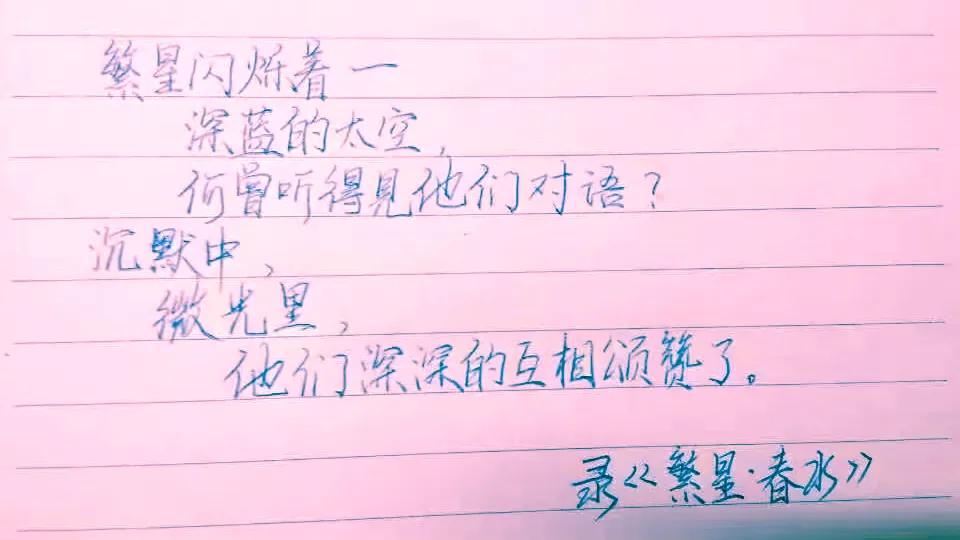 繁星闪烁着一
深蓝的太空，
何曾听得见他们对语？
沉默中，
微光里，
他们深深的互相颂赞了。
录《繁星·春水》